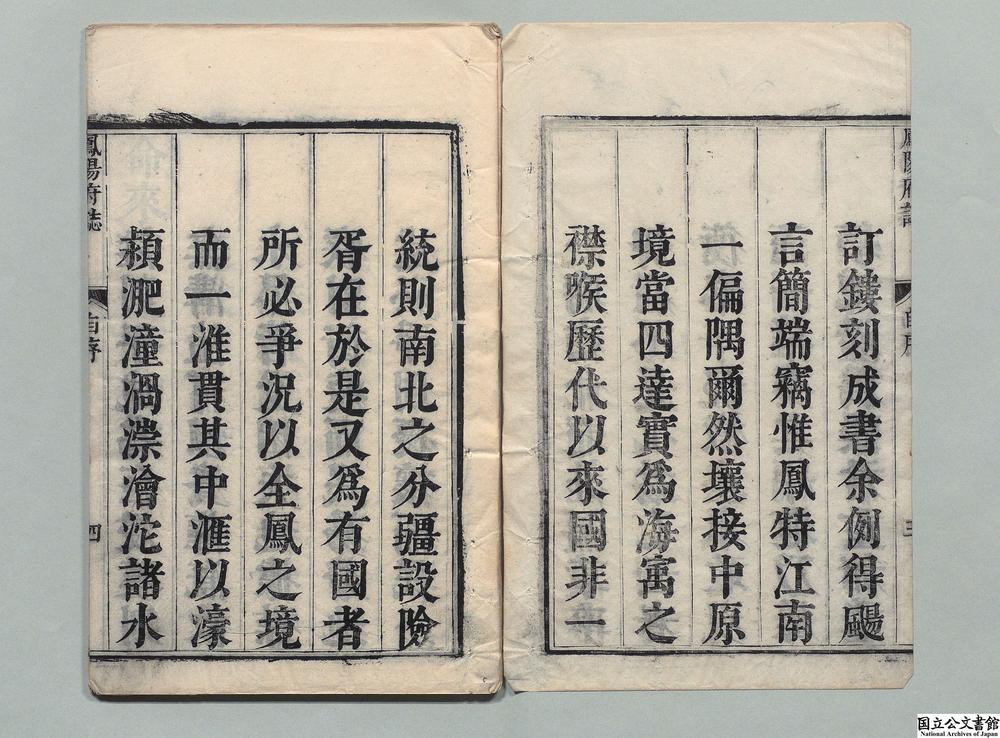 訂鏤刻成書余例得颺
言簡端竊惟鳳特江南
一偏隅爾然壤接中原
境當四達實為海寓之
襟喉歷代以來國非一
統則南北之分疆設險
胥在於是又為有國者
所必爭況以全鳳之境
而一淮貫其中滙以濠
潁淝潼渦漴澮沱諸水
鳳陽府誌
四
国立公文書館
National Archives of Japan